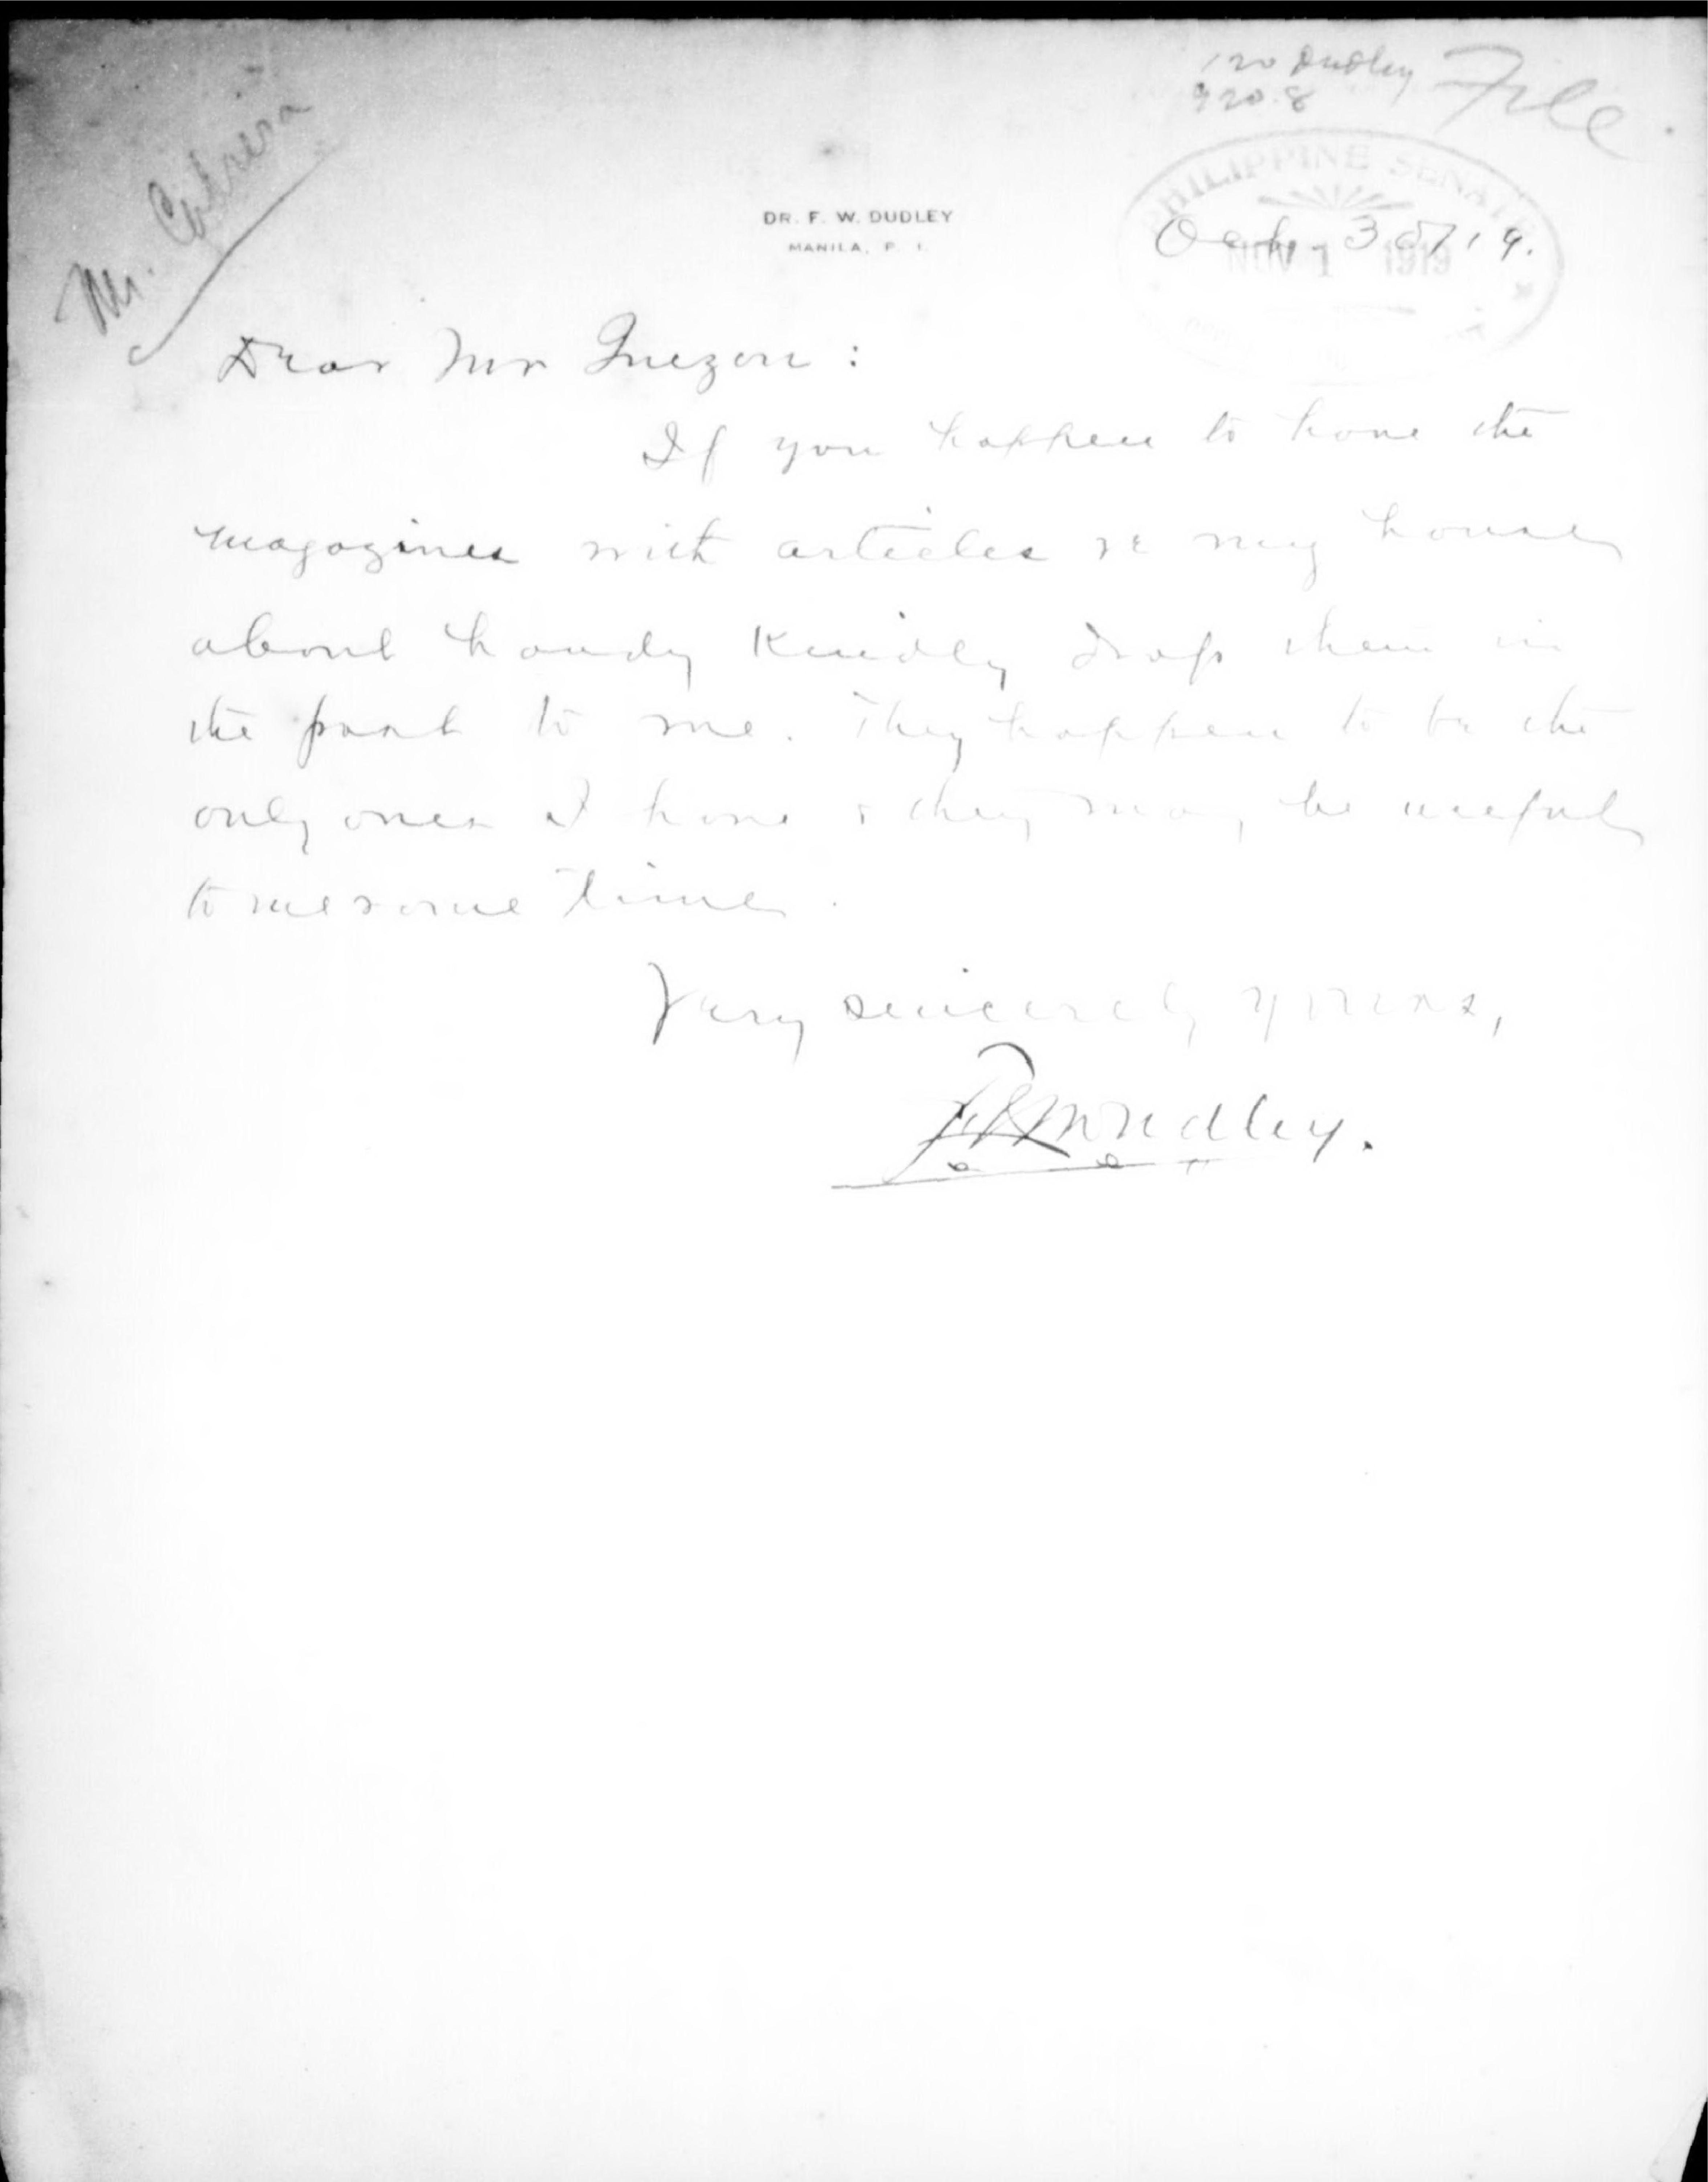 120 Dudley
920.8
File.
Mr. Cabrera
PHILIPPINE SENATE
NOV 1 1919
DR. F. W. DUDLEY
MANILA, P. I.
Oct. 30/19.
Dear Mr Quezon :
If you happen to have the
magazines with articles re my house
about handy kindly drop them in
the post to me. They happen to be the
only ones I have & they may be useful
to me some time.
Very sincerely yours,
F W Dudley.